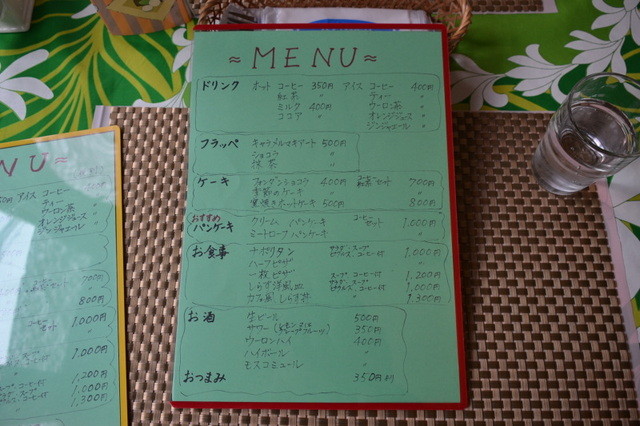 ≈ MENU ≈
ドリンク ホット コーヒー 350円 アイス コーヒー 400円
紅茶 〃 ティー 〃
ミルク 400円 ウーロン茶 〃
ココア 〃 オレンジジュース 〃
ジンジャエール 〃
フラッペ キャラメルマキアート 500円
ショコラ 〃
抹茶 〃
ケーキ フォンダンショコラ 400円 コーヒー 紅茶 セット 700円
季節のケーキ 〃 〃
窯焼きチーズケーキ 500円 800円
おすすめ
パンケーキ クリーム パンケーキ コーヒー セット 1,000円
ミートローフ パンケーキ 〃
お食事 ナポリタン サラダ、スープ 1,000円
ハーフピザ 〃
一枚ピザ スープ コーヒー付 1,200円
しらす洋風皿 1,000円
カフェ風 しらす丼 1,300円
お酒 生ビール 500円
サワー 350円
ウーロンハイ 400円
ハイボール 〃
モスコミュール 〃
おつまみ 350円より
NU ≈
アイス コーヒー
ティー
ウーロン茶
オレンジジュース
ジンジャエール
700円
800円
コーヒー セット 1,000円
〃
1,000円
〃
1,200円
1,000円
1,300円